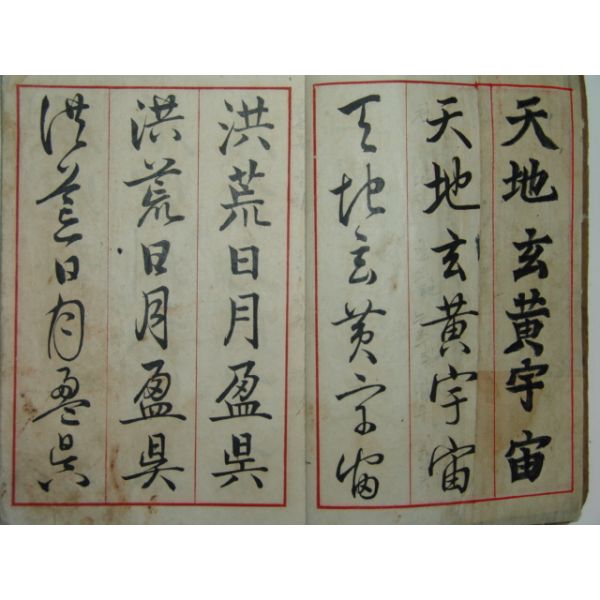 天地玄黃宇宙
天地玄黃宇宙
天地玄黃宇宙
洪荒日月盈昃
洪荒日月盈昃
洪荒日月盈昃